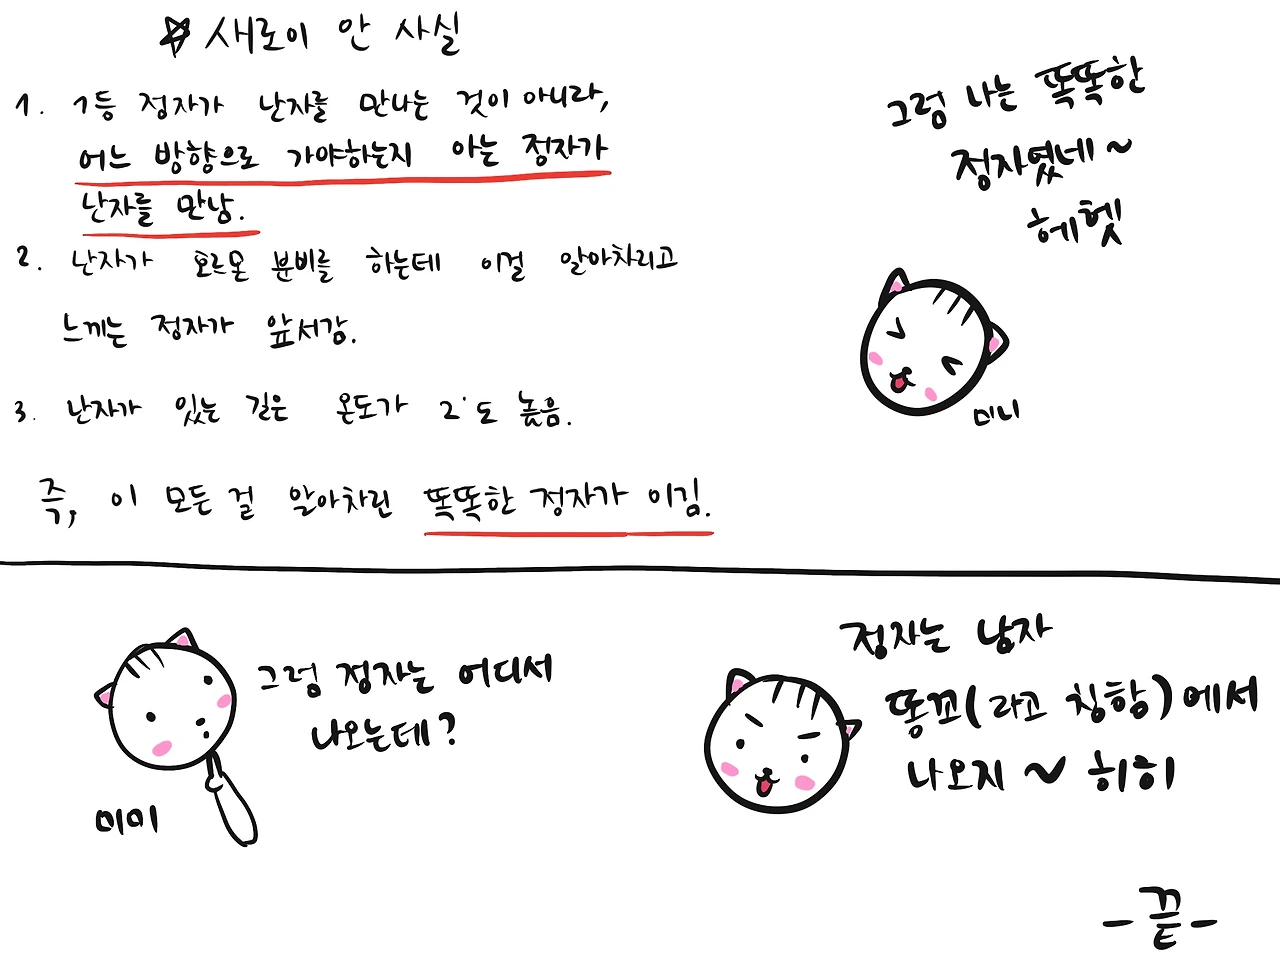 ☆ 새로이 안 사실
1. 1등 정자가 난자를 만나는 것이 아니라,
어느 방향으로 가야하는지 아는 정자가
난자를 만남.
2. 난자가 호르몬 분비를 하는데 이걸 알아차리고
느끼는 정자가 앞서감.
3. 난자가 있는 길은 온도가 2°도 높음.
즉, 이 모든 걸 알아차린 똑똑한 정자가 이김.
그럼 나는 똑똑한
정자였네~
헤헷
미니
그럼 정자는 어디서
나오는데?
미미
정자는 남자
똥꼬(라고 칭함)에서
나오지 ~ 히히
- 끝 -